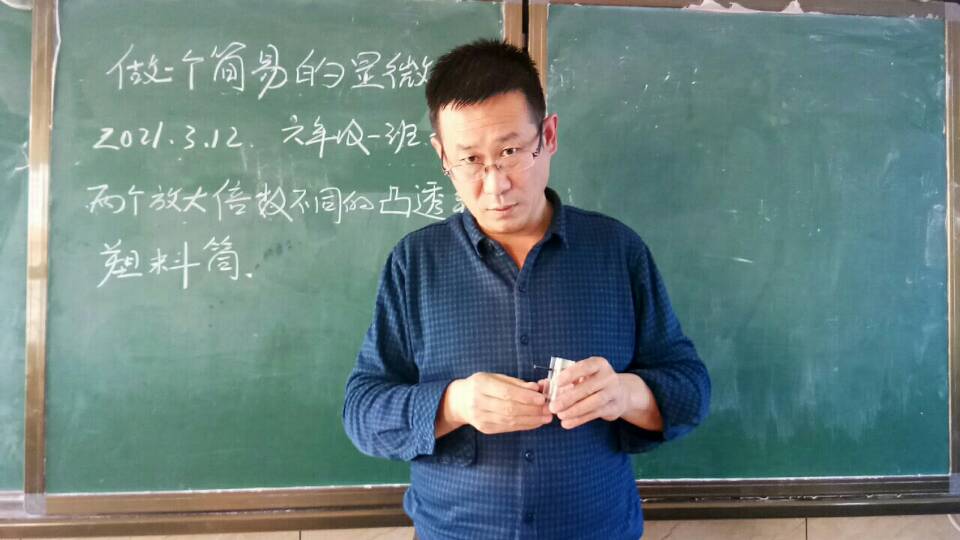 做一个简易的显微
2021.3.12. 六年级一班
两个放大倍数不同的凸透
塑料筒.